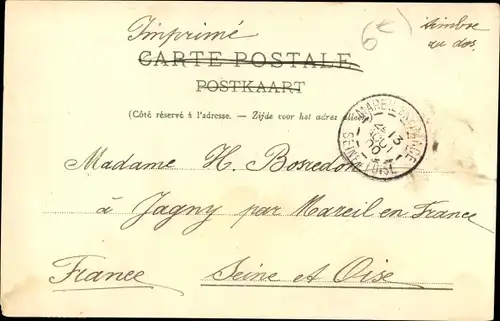 Imprimé
6€
timbre
au dos.
CARTE POSTALE
POSTKAART
(Côté réservé à l'adresse. — Zijde voor het adres alleen)
MAREIL-EN-FRANCE
13
AOUT
00
SEINE-ET-OISE
Madame H. Bosredon
à Jagny par Mareil en France
France Seine et Oise